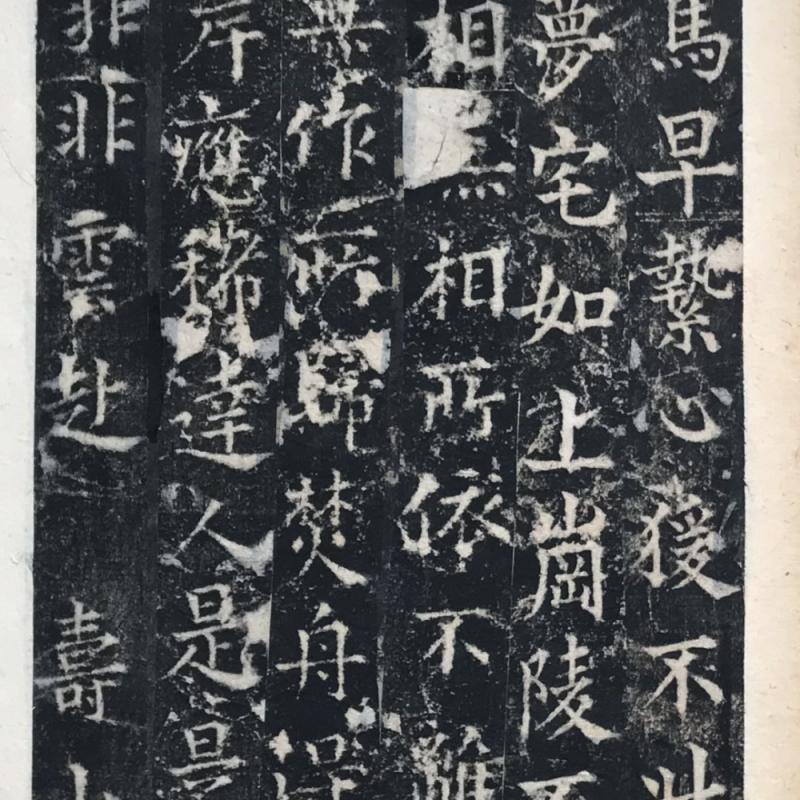 馬早縶心猨不
夢宅如上崗陵不
相無相所依不離
無作所歸焚舟
岸應達人是是
非非雲赴 壽